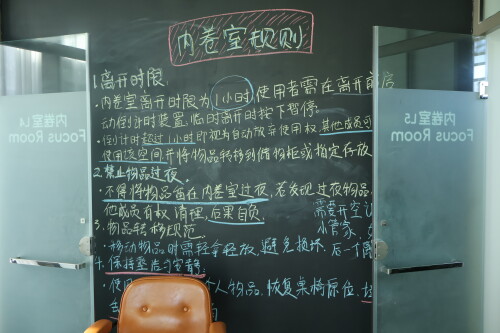 内卷室规则
1.离开时限.
·内卷室离开时限为1小时,使用者需在离开前启
动倒计时装置,临时离开时按下暂停.
·倒计时超过1小时即视为自动放弃使用权,其他成员可
使用该空间并将物品转移到储物柜或指定存放
2.禁止物品过夜.
·不得将物品留在内卷室过夜,若发现过夜物品,
他成员有权清理,后果自负.
需要开空
小管家,
3.物品转移规范.
·移动物品时需轻拿轻放,避免损坏,后一个
4.保持整洁与安静.
·使用 个人物品,恢复桌椅原位,
内卷室L5
Focus Room
内卷室L5
Focus Room